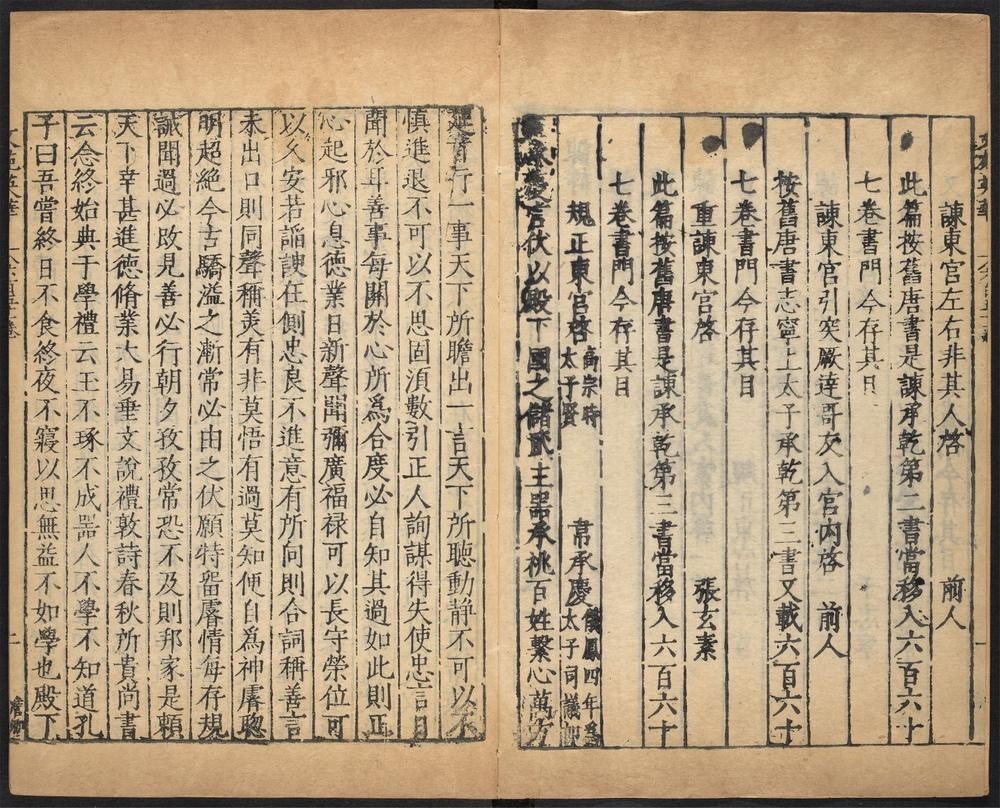 諌東宮左右非其人啓　前人
此篇按舊唐書是諌承乾第二書當移入六百六十
七巻書門今存其目
諌東宮引突厥達哥友入宮内啓　前人
按舊唐書志寧上太子承乾第三書又載六百六十
七巻書門今存其目
重諌東宮啓　張玄素
此篇按舊唐書是諌承乾第三書當移入六百六十
七巻書門今存其目
規正東宮啓高宗時太子賢　韋承慶儀鳳四年為太子司議郎
言伏以殿下國之儲貳主噐承祧百姓繫心萬方
行一事天下所瞻出一言天下所聴動静不可以不
慎進退不可以不思固湏數引正人詢謀得失使忠言日
聞於耳善事每關於心所為合度必自知其過如此則正
心起邪心息徳業日新聲聞彌廣福禄可以長守榮位可
以久安若謟諛在側忠良不進意有所向則合詞稱善言
未出口則同聲稱羙有非莫悟有過莫知便自為神膚聦
明超絶今古驕溢之漸常必由之伏願特畱膚情每存規
誡聞過必攺見善必行朝夕孜孜常恐不及則邦家是頼
天下幸甚進徳脩業大易垂文說禮敦詩春秋所貴尚書
云念終始典于學禮云王不琢不成噐人不學不知道孔
子曰吾嘗終日不食終夜不寢以思無益不如學也殿下